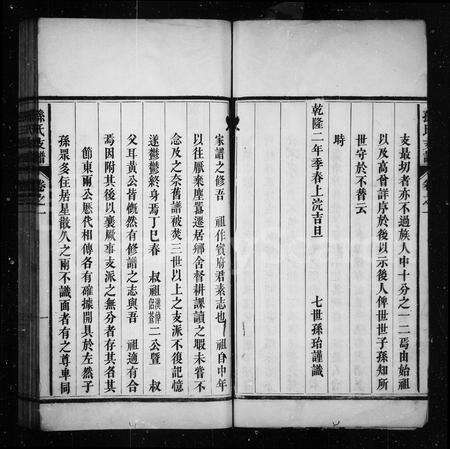 支最切者亦不過族人中十分之一二焉由始祖
以及高曾詳序於後以示後人俾世世子孫知所
世守於不替云
時
乾隆二年季春上浣吉旦
七世孫珆謹識
家譜之修吾　祖作賓府君素志也　祖自中年
以往厭棄塵囂還居鄉舍督耕課讀之暇未嘗不
念及之奈舊譜被焚三世以上之支派不復記憶
遂鬱鬱終身焉丁巳春　叔祖 二公暨　叔
父耳黃公皆慨然有修譜之志與吾　祖適有合
焉因附其後以襄厥事支派之無分者存其名其
節東兩公歷代相傳各有確據開具於左然子
孫眾多住居星散久之而不識面者有之尊卑同
孫氏支譜
卷之一